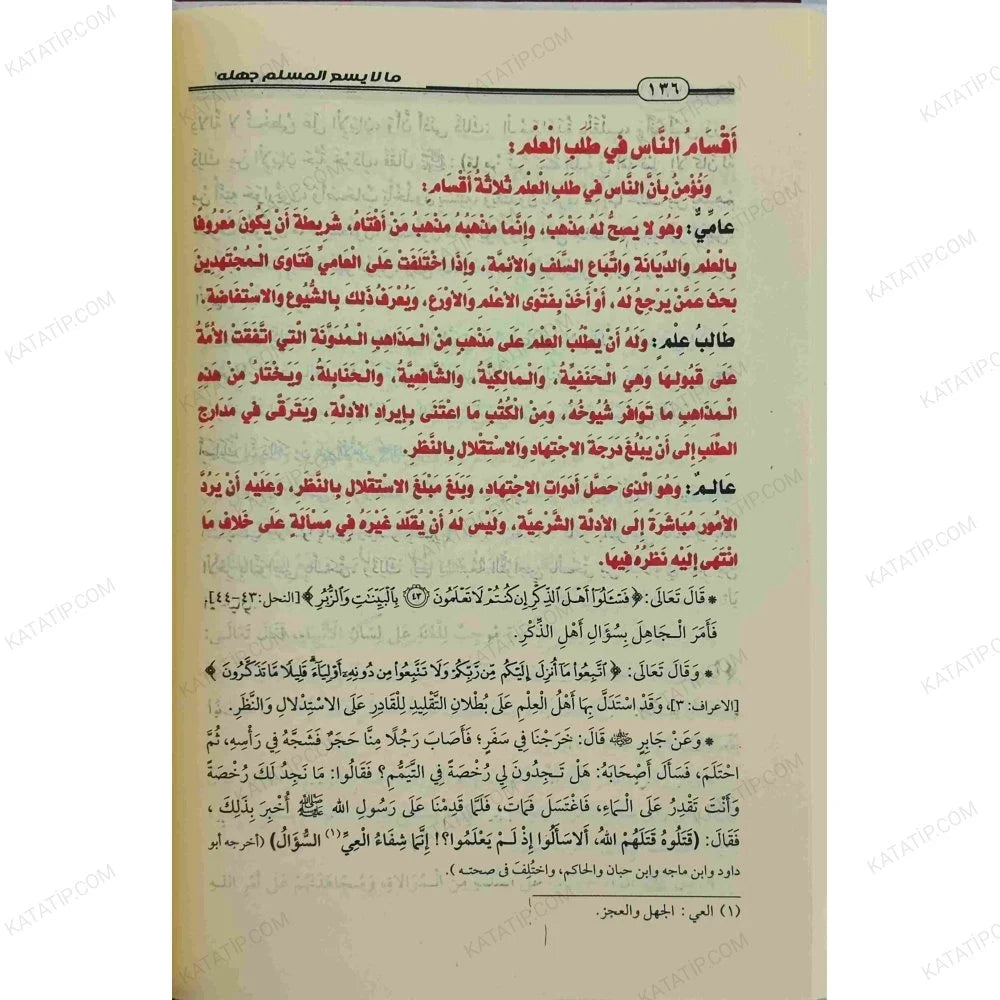 ما لا يسع المسلم جهله
١٣٦
أَقْسَامُ النَّاسِ فِي طَلَبِ الْعِلْمِ:
وَنُؤْمِنُ بِأَنَّ النَّاسَ فِي طَلَبِ الْعِلْمِ ثَلَاثَةُ أَقْسَامٍ:
عَامِّيٌّ: وَهُوَ لَا يَصِحُّ لَهُ مَذْهَبٌ، وَإِنَّمَا مَذْهَبُهُ مَذْهَبُ مَنْ أَفْتَاه، شَرِيطَةَ أَنْ يَكُونَ مَعْرُوفًا
بِالْعِلْمِ وَالدِّيَانَةِ وَاتِّبَاعِ السَّلَفِ وَالأَئِمَّةِ، وَإِذَا اخْتَلَفَتْ عَلَى الْعَامِيِّ فَتَاوَى الْمُجْتَهِدِينَ
بَحَثَ عَمَّنْ يَرْجِعُ لَهُ، أَوْ أَخَذَ بِفَتْوَى الأَعْلَمِ وَالأَوْرَعِ، وَيُعْرَفُ ذَلِكَ بِالشُّيُوعِ وَالاسْتِفَاضَةِ.
طَالِبُ عِلْمٍ: وَلَهُ أَنْ يَطْلُبَ الْعِلْمَ عَلَى مَذْهَبٍ مِنْ الْمَذَاهِبِ الْمُدَوَّنَةِ الَّتِي اتَّفَقَتْ الأُمَّةُ
عَلَى قَبُولِهَا وَهِيَ الْحَنَفِيَّةُ، وَالْمَالِكِيَّةُ، وَالشَّافِعِيَّةُ، وَالْحَنَابِلَةُ، وَيَخْتَارُ مِنْ هَذِهِ
الْمَذَاهِبِ مَا تَوَافَرَ شُيُوخُهُ، وَمِنَ الْكُتُبِ مَا اعْتَنَى بِإِيرَادِ الأَدِلَّةِ، وَيَتَرَقَّى فِي مَدَارِجِ
الطَّلَبِ إِلَى أَنْ يَبْلُغَ دَرَجَةَ الاجْتِهَادِ وَالاسْتِقْلَالِ بِالنَّظَرِ.
عَالِمٌ: وَهُوَ الَّذِي حَصَّلَ أَدَوَاتِ الاجْتِهَادِ، وَبَلَغَ مَبْلَغَ الاسْتِقْلَالِ بِالنَّظَرِ، وَعَلَيْهِ أَنْ يَرُدَّ
الأُمُورَ مُبَاشَرَةً إِلَى الأَدِلَّةِ الشَّرْعِيَّةِ، وَلَيْسَ لَهُ أَنْ يُقَلِّدَ غَيْرَهُ فِي مَسْأَلَةٍ عَلَى خِلَافِ مَا
انْتَهَى إِلَيْهِ نَظَرُهُ فِيهَا.
* قَالَ تَعَالَى: ﴿فَسْـَٔلُوٓا۟ أَهْلَ ٱلذِّكْرِ إِن كُنتُمْ لَا تَعْلَمُونَ ٤٣ بِٱلْبَيِّنَٰتِ وَٱلزُّبُرِ﴾ [النحل: ٤٣-٤٤]،
فَأَمَرَ الْجَاهِلَ بِسُؤَالِ أَهْلِ الذِّكْرِ.
* وَقَالَ تَعَالَى: ﴿ٱتَّبِعُوا۟ مَآ أُنزِلَ إِلَيْكُم مِّن رَّبِّكُمْ وَلَا تَتَّبِعُوا۟ مِن دُونِهِۦٓ أَوْلِيَآءَ ۗ قَلِيلًا مَّا تَذَكَّرُونَ﴾
[الاعراف: ٣]، وَقَدْ اسْتَدَلَّ بِهَا أَهْلُ الْعِلْمِ عَلَى بُطْلَانِ التَّقْلِيدِ لِلْقَادِرِ عَلَى الاسْتِدْلَالِ وَالنَّظَرِ.
* وَعَنْ جَابِرٍ رضي الله عنه قَالَ: خَرَجْنَا فِي سَفَرٍ؛ فَأَصَابَ رَجُلًا مِنَّا حَجَرٌ فَشَجَّهُ فِي رَأْسِهِ، ثُمَّ
احْتَلَمَ، فَسَأَلَ أَصْحَابَهُ: هَلْ تَجِدُونَ لِي رُخْصَةً فِي التَّيَمُّمِ؟ فَقَالُوا: مَا نَجِدُ لَكَ رُخْصَةً
وَأَنْتَ تَقْدِرُ عَلَى الْمَاءِ، فَاغْتَسَلَ فَمَاتَ، فَلَمَّا قَدِمْنَا عَلَى رَسُولِ الله ﷺ أُخْبِرَ بِذَلِكَ،
فَقَالَ: (قَتَلُوهُ قَتَلَهُمُ اللهُ، أَلَا سَأَلُوا إِذْ لَمْ يَعْلَمُوا؟! إِنَّمَا شِفَاءُ الْعِيِّ(١) السُّؤَالُ) (أخرجه أبو
داود وابن ماجه وابن حبان والحاكم، واختُلِفَ في صحته).
(١) العي: الجهل والعجز.
KATATİP.COM